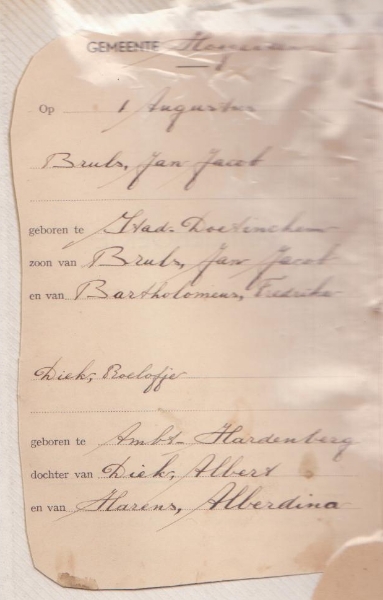 GEMEENTE
Op 1 Augustus
Bruls, Jan Jacob
geboren te Stad-Doetinchem
zoon van Bruls, Jan Jacob
en van Bartholomeus, Fredrika
Diek, Roelofje
geboren te Ambt-Hardenberg
dochter van Diek, Albert
en van Harens, Alberdina